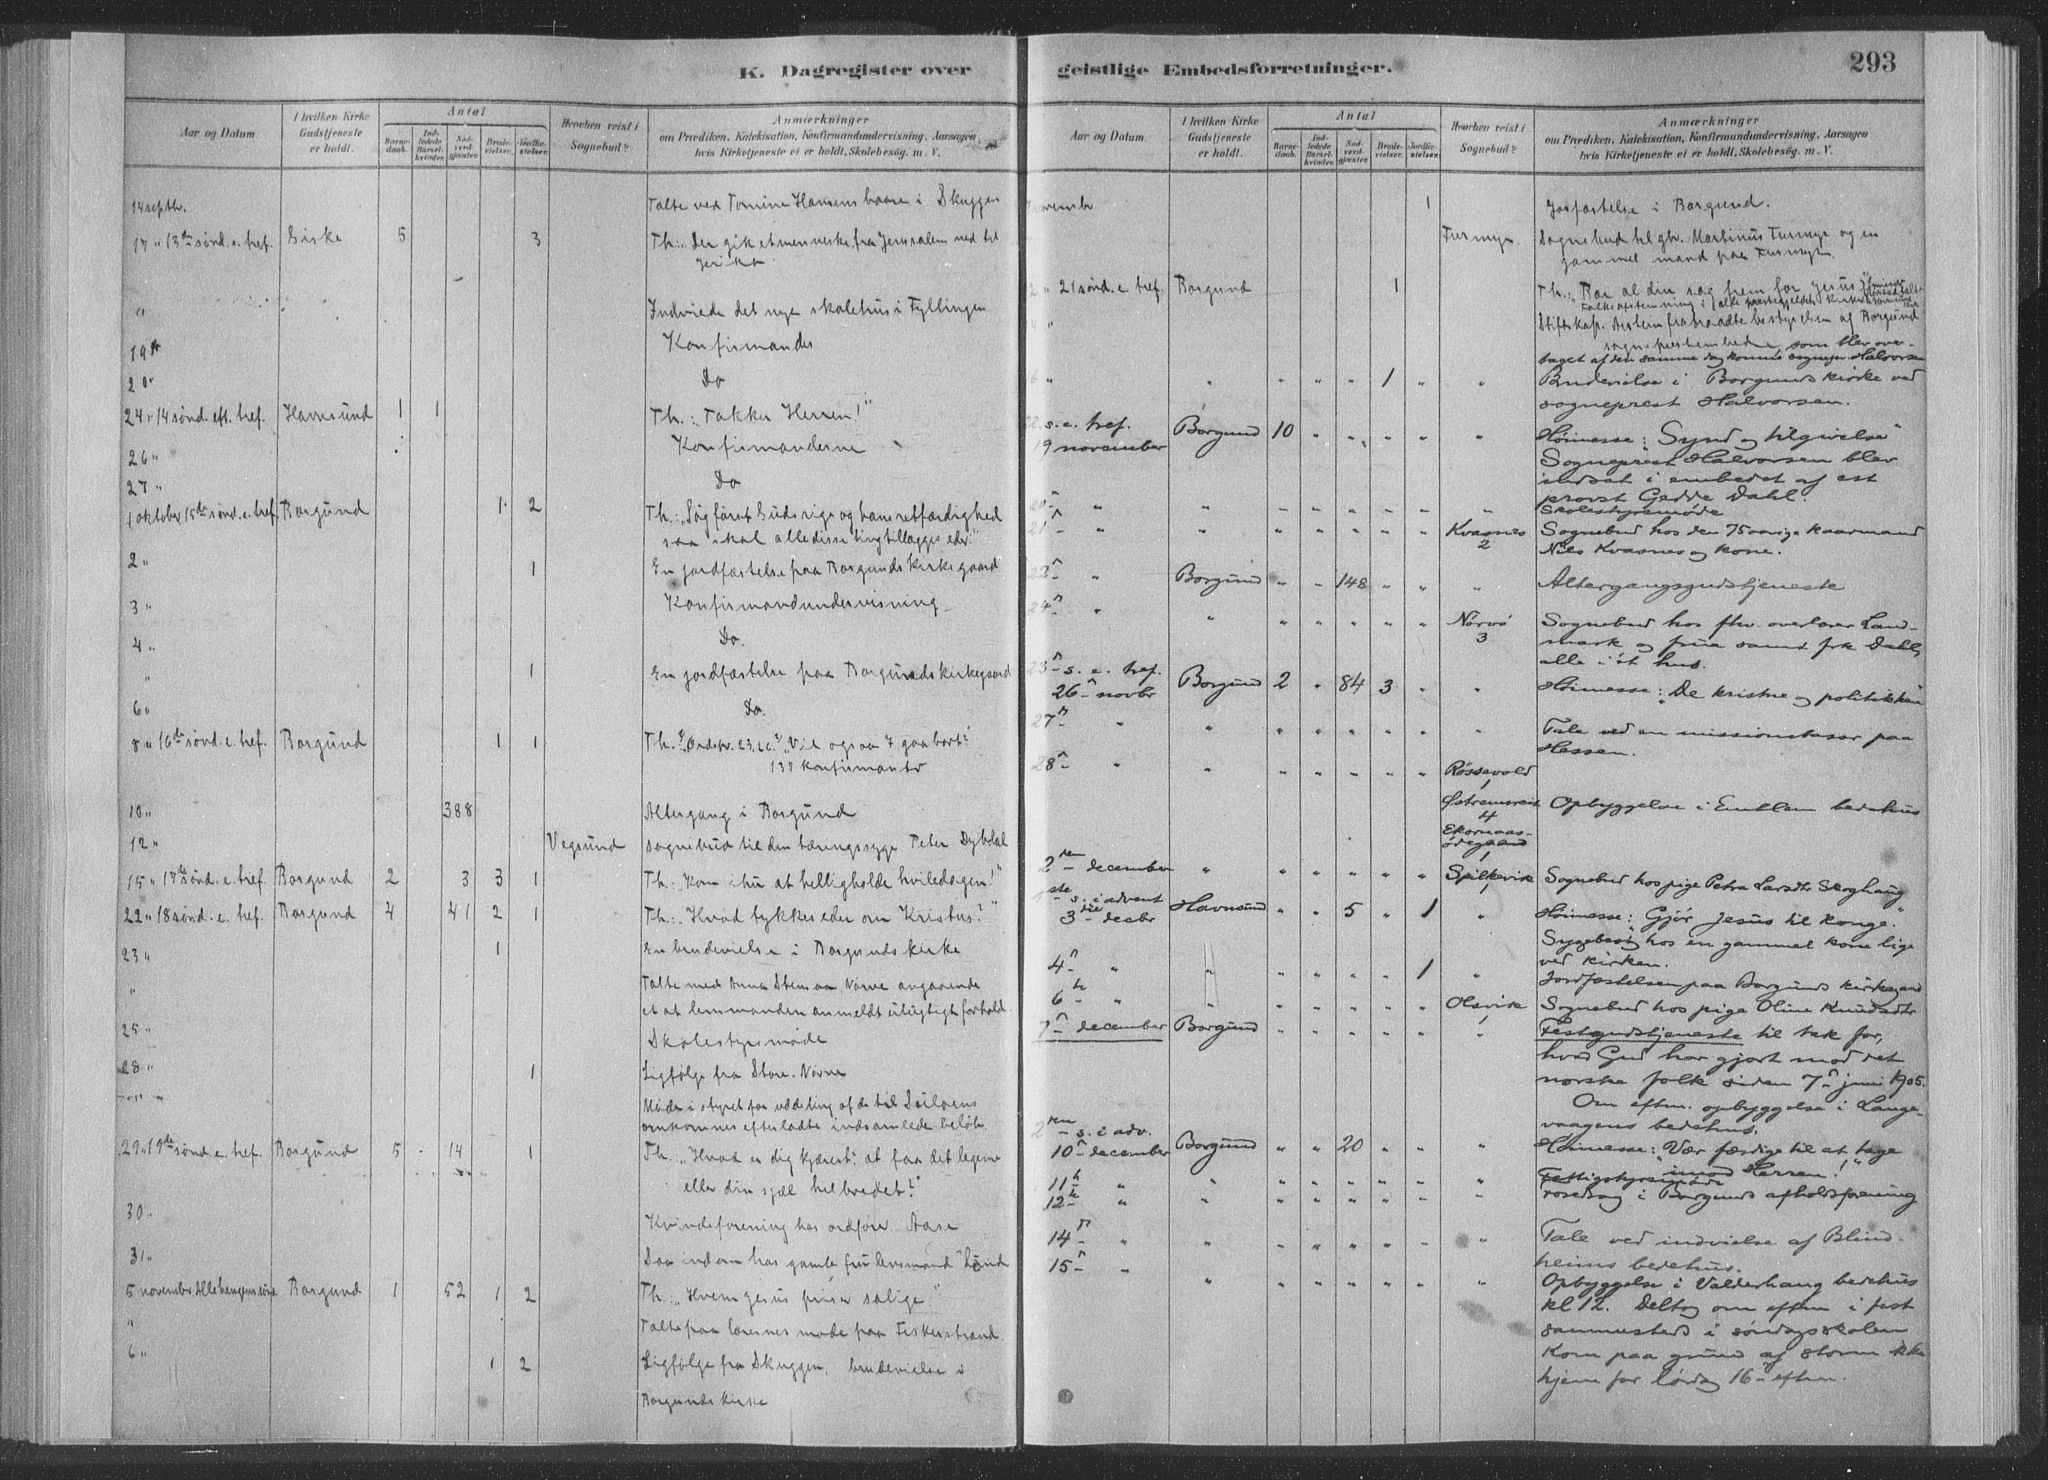 K. Dagregister over
Aar og Datum
I hvilken Kirke Gudstjeneste er holdt.
Antal
Barnedaab.
Indledede Barselkvinder.
Nadverdgjæster.
Brudevielser.
Jordfæstelser.
Hvorhen reist i Sognebud?
Anmærkninger
om Prædiken, Katekisation, Konfirmandundervisning, Aarsagen
hvis Kirketjeneste ei er holdt, Skolebesøg. m. V.
14 septbr. Talte ved Tomine Hansens baare i Skuggen
17 " 13de sønd. e. tref. Giske 5 3 Th.: Der gik et menneske fra Jerusalem ned til
Jeriko
" Indviede det nye skolehus i Fyllingen
19 " Konfirmander
20 " Do
24 " 14 sønd. eft. tref. Havnsund 1 1 Th.: Takker Herren!"
26 " Konfirmanderne
27 " Do
1 oktober 15de sønd. e. tref. Borgund 1 2 Th.: "Søg først Guds rige og hans retfærdighed
saa skal alle disse ting tillægges eder."
2 " 1 En jordfæstelse paa Borgunds kirkegaard
3 " Konfirmandundervisning
4 " Do.
" 1 En jordfæstelse paa Borgunds kirkegaard
6 " Do.
8 " 16de sønd. e. tref. Borgund 1 1 Th.: Ordspr. 23.26. "Vil ogsaa I gaa bort?
137 konfirmanter
10 " 388 Altergang i Borgund
12 " Vegsund sognebud til den tæringssyge Peter Dybdal
15 " 17de sønd. e. tref. Borgund 2 3 3 1 Th.: "Kom ihu at helligholde hviledagen!"
22 " 18 sønd. e. tref. Borgund 4 41 2 1 Th.: "Hvad tykkes eder om Kristus?"
23 " 1 En brudevielse i Borgunds kirke
" Talte med Anna Stensaa, Nørve angaaende
et af lensmanden anmeldt utugtigt forhold.
25 " Skolestyremøde
28 " 1 Ligfølge fra Store-Nørve
" Møde i styret for uddeling af de til
omkomnes efterladte indsamlede beløb.
29 " 19de sønd. e. tref. Borgund 5 14 1 Th.: "Hvad er dig kjærest: at faa dit legeme
eller din sjæl helbredet?"
30 " Kvindeforening hos ordfører Aase
31 " Saa indom hos gamle fru lensmand Lund
5 november Allehelgenssønd Borgund 1 52 1 2 Th.: "Hvem Jesus priser salige"
" Talte paa lærernes møde paa Fiskerstrand.
6 " 1 2 Ligfølge fra Skuggen, brudevielse i
Borgunds kirke
geistlige Embedsforretninger.
293
Aar og Datum.
I hvilken Kirke Gudstjeneste er holdt.
Antal
Barnedaab.
Indledede Barselkvinder.
Nadverdgjæster.
Brudevielser.
Jordfæstelser.
Hvorhen reist i Sognebud?
Anmærkninger
om Prædiken, Katekisation, Konfirmandundervisning, Aarsagen
hvis Kirketjeneste ei er holdt, Skolebesøg. m. V.
novembr 1 Jordfæstelse i Borgund.
Furmyr. Sognebud til gbr. Martinus Furmyr og en
gammel mand paa Furmyr.
" 21 sønd. e. tref. Borgund 1 Th.: "Bær al din sag frem for Jesus"
Folkeafstemning i
Stiftskap. fratraadte bestyrelsen af Borgund
sogneprestembede, som blev over-
taget af den samme dag komne sognepr. Halvorsen
" " " " " 1 " " Brudevielse i Borgunds kirke ved
sogneprest Halvorsen.
22. s. e. tref.
19 november Borgund 10 " " " " " Høimesse: "Synd og tilgivelse"
Sogneprest Halvorsen blev
indsat i embedet af cst
provst Gedde Dahl.
20 " " " " " " " " Skolestyremøde
21 " " " " " " " " Kvasnes 2 Sognebud hos den 75 aarige kaarmand
Nils Kvasnes og kone.
22 " " Borgund " " 148 " " " Altergangsgudstjeneste
24 " " " " " " " " Nørvø 3 Sognebud hos fhv. overlærer Land-
mark og frue samt frk Dahl,
alle i ét hus.
23 s. e. tref.
26 novbr Borgund 2 " 84 3 " " Høimesse: "De kristne og politikken"
27 " " " " " " " " " Tale ved en missionsbasar paa
Hessen.
28 " " " " " " " " Røssevold
1
Østremsreit Opbyggelse i Emblem bedehus
4
Ekornaas-
ødegaard
1
2den december " " " " " " Spilkevik 1 Sognebud hos pige Petra Larsdtr Skoghaug
1ste s. i advent
3die decbr Havnsund " " 5 " 1 " Høimesse: "Gjør Jesus til konge."
Sygebesøg hos en gammel kone lige
ved kirken.
4 " " " " " " 1 " Jordfæstelsen paa Borgunds kirkegaard
6 " " " " " " " Olsvik 1 Sognebud hos pige Oline Knudsdtr
7 december Borgund " " " " " Festgudstjeneste til tak for,
hvad Gud har gjort mod det
norske folk siden 7 juni 1905.
Om eftm. opbyggelse i Lange-
vaagens bedehus.
2den s. i adv.
10 december Borgund " " 20 " " " Høimesse: "Vær færdige til at tage
imod Herren!"
11 " " " " " " " " Fattigstyremøde
12 " " " " " " " " Foredrag i Borgunds afholdsforening
14 " " " " " " " " " Tale ved indvielse af Blind-
heims bedehus.
15 " " " " " " " " Opbyggelse i Valderhaug bedehus
kl 12. Deltog om eftm i fest
sammesteds i søndagsskolen
Kom paa grund af storm ikke
hjem før lørdag 16 eftm.